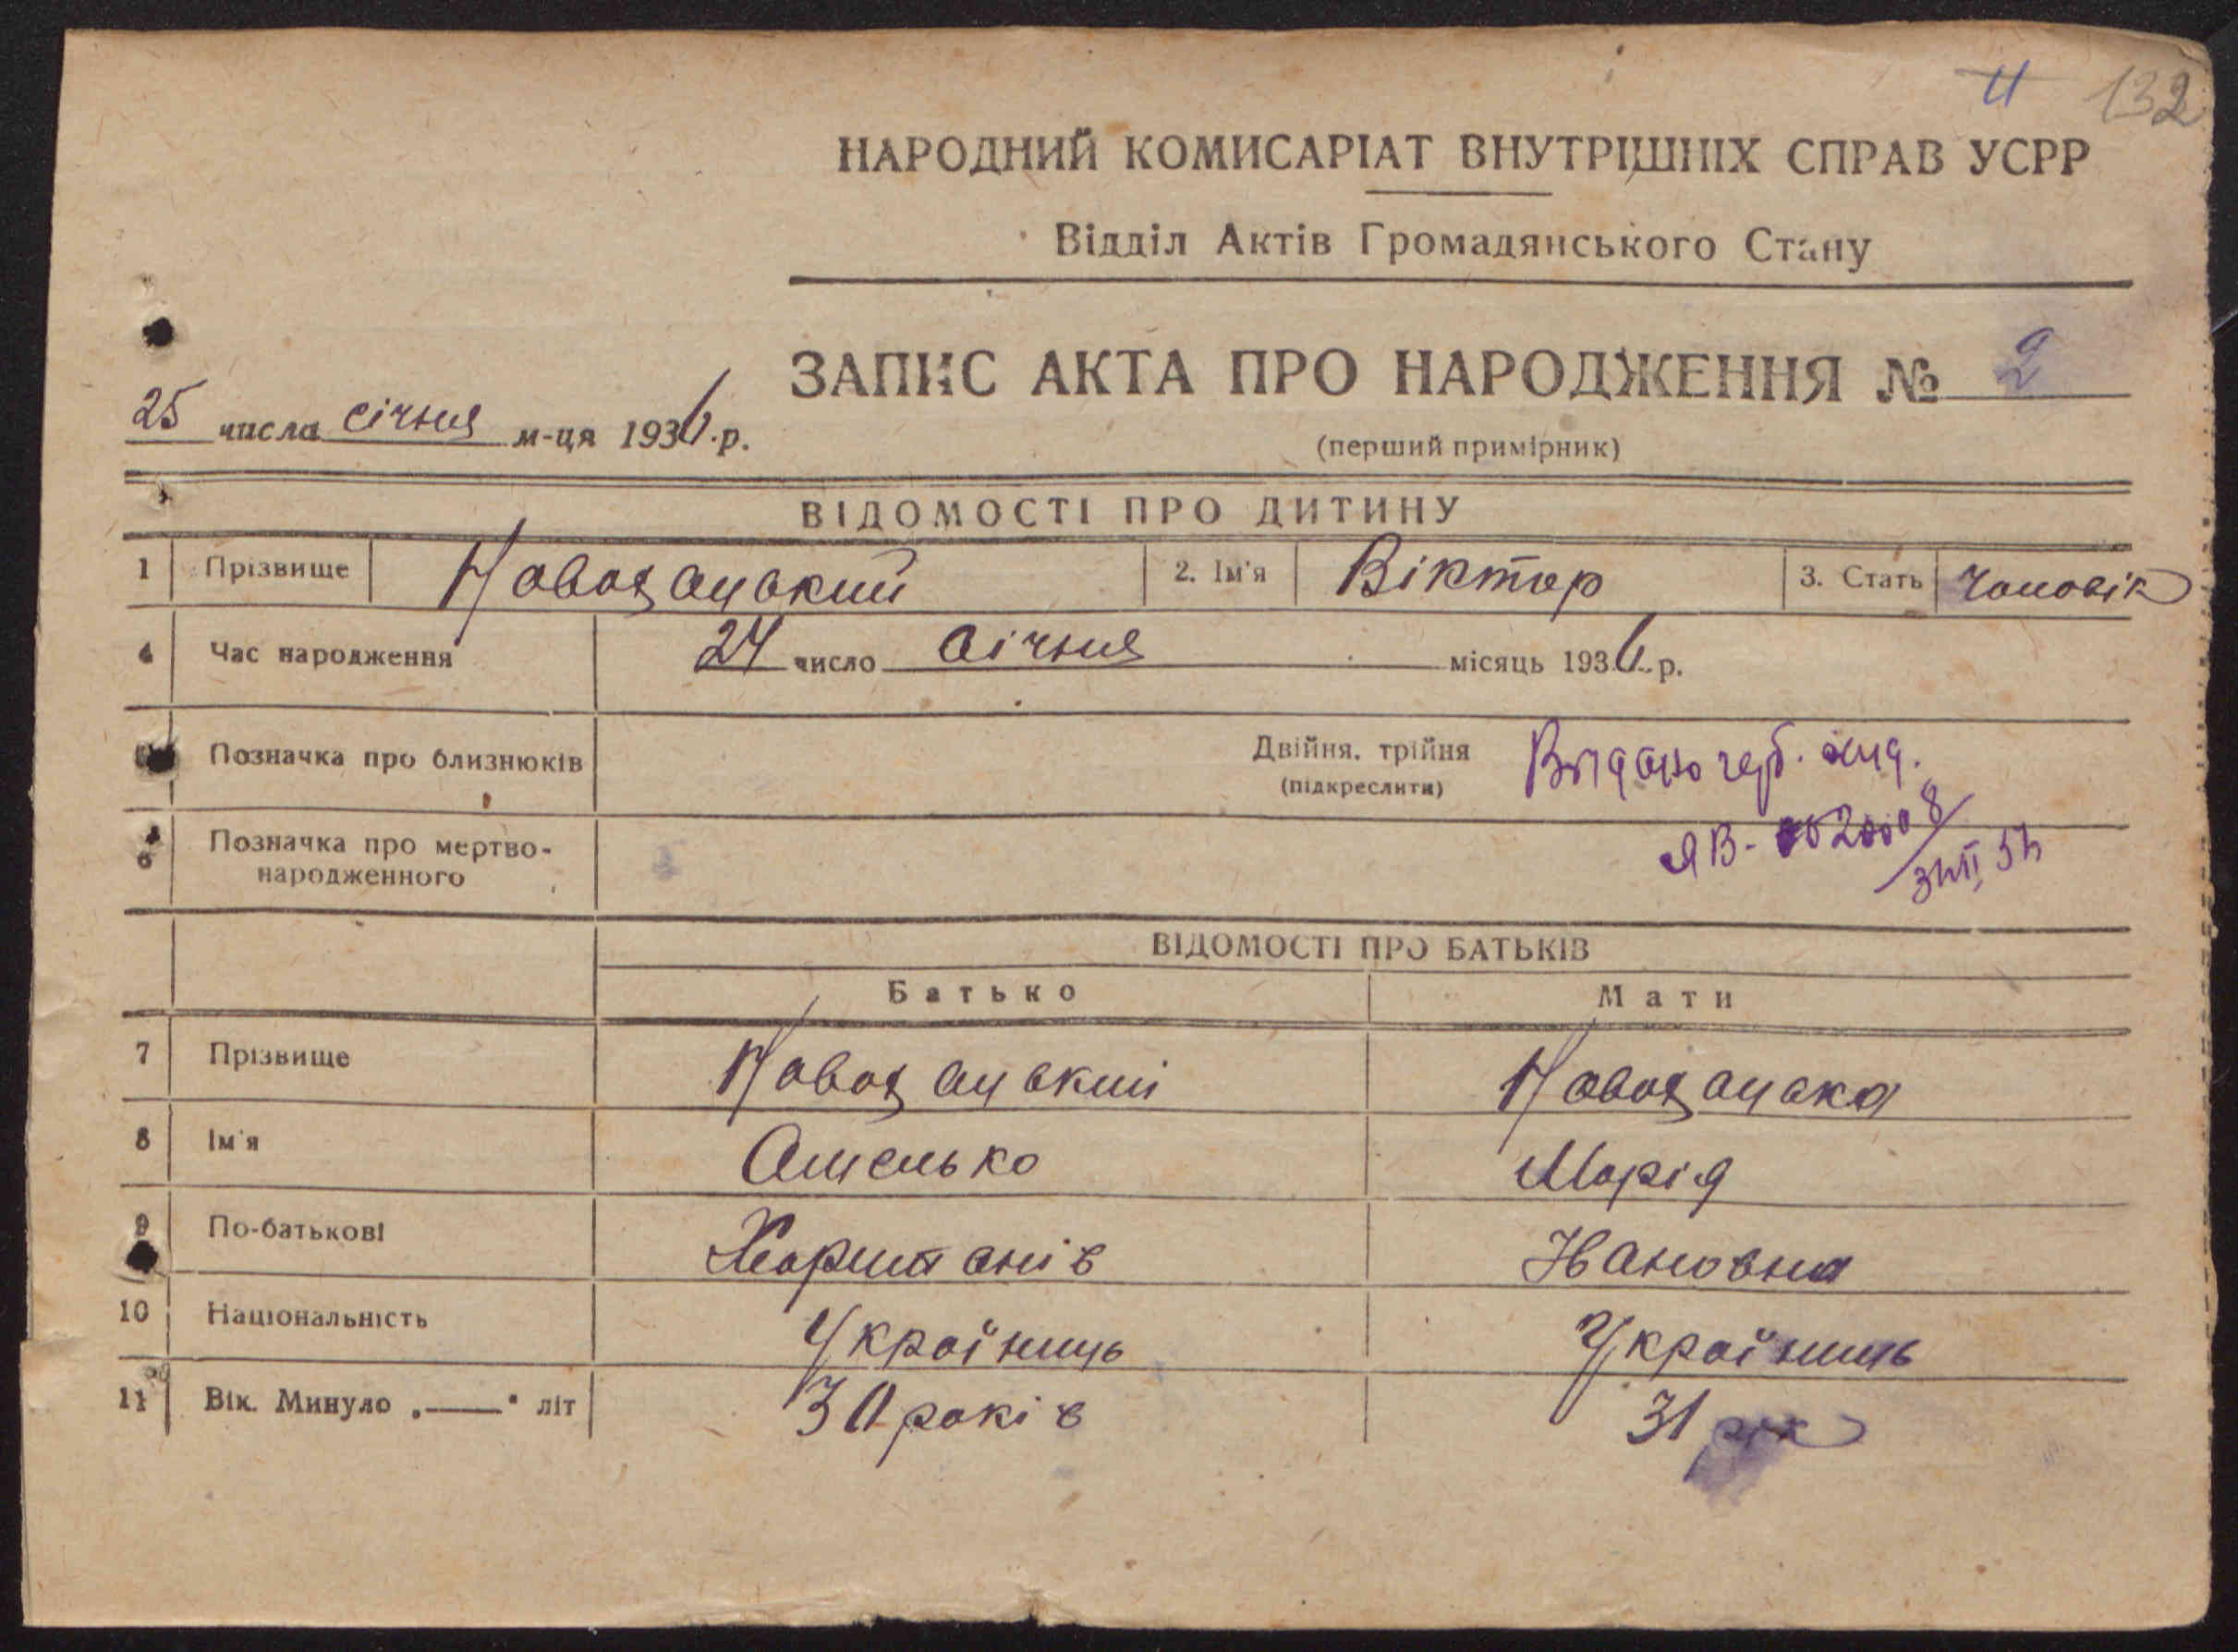 132
НАРОДНИЙ КОМИСАРІАТ ВНУТРІШНІХ СПРАВ УСРР
Відділ Актів Громадянського Стану
ЗАПИС АКТА ПРО НАРОДЖЕННЯ № 2
25 числа січня м-ця 1936 р.
(перший примірник)
ВІДОМОСТІ ПРО ДИТИНУ
1 Прізвище 2. Ім'я Віктор 3. Стать чоловік
4 Час народження 24 число січня місяць 1936 р.
Позначка про близнюків Двійня, трійня
(підкреслити)
6 Позначка про мертво-
народженного
ВІДОМОСТІ ПРО БАТЬКІВ
Батько Мати
7 Прізвище
8 Ім'я Омелько Марія
9 По-батькові Харитонів Івановна
10 Національність Українець Українець
11 Вік. Минуло „—" літ 30 років 31 рік